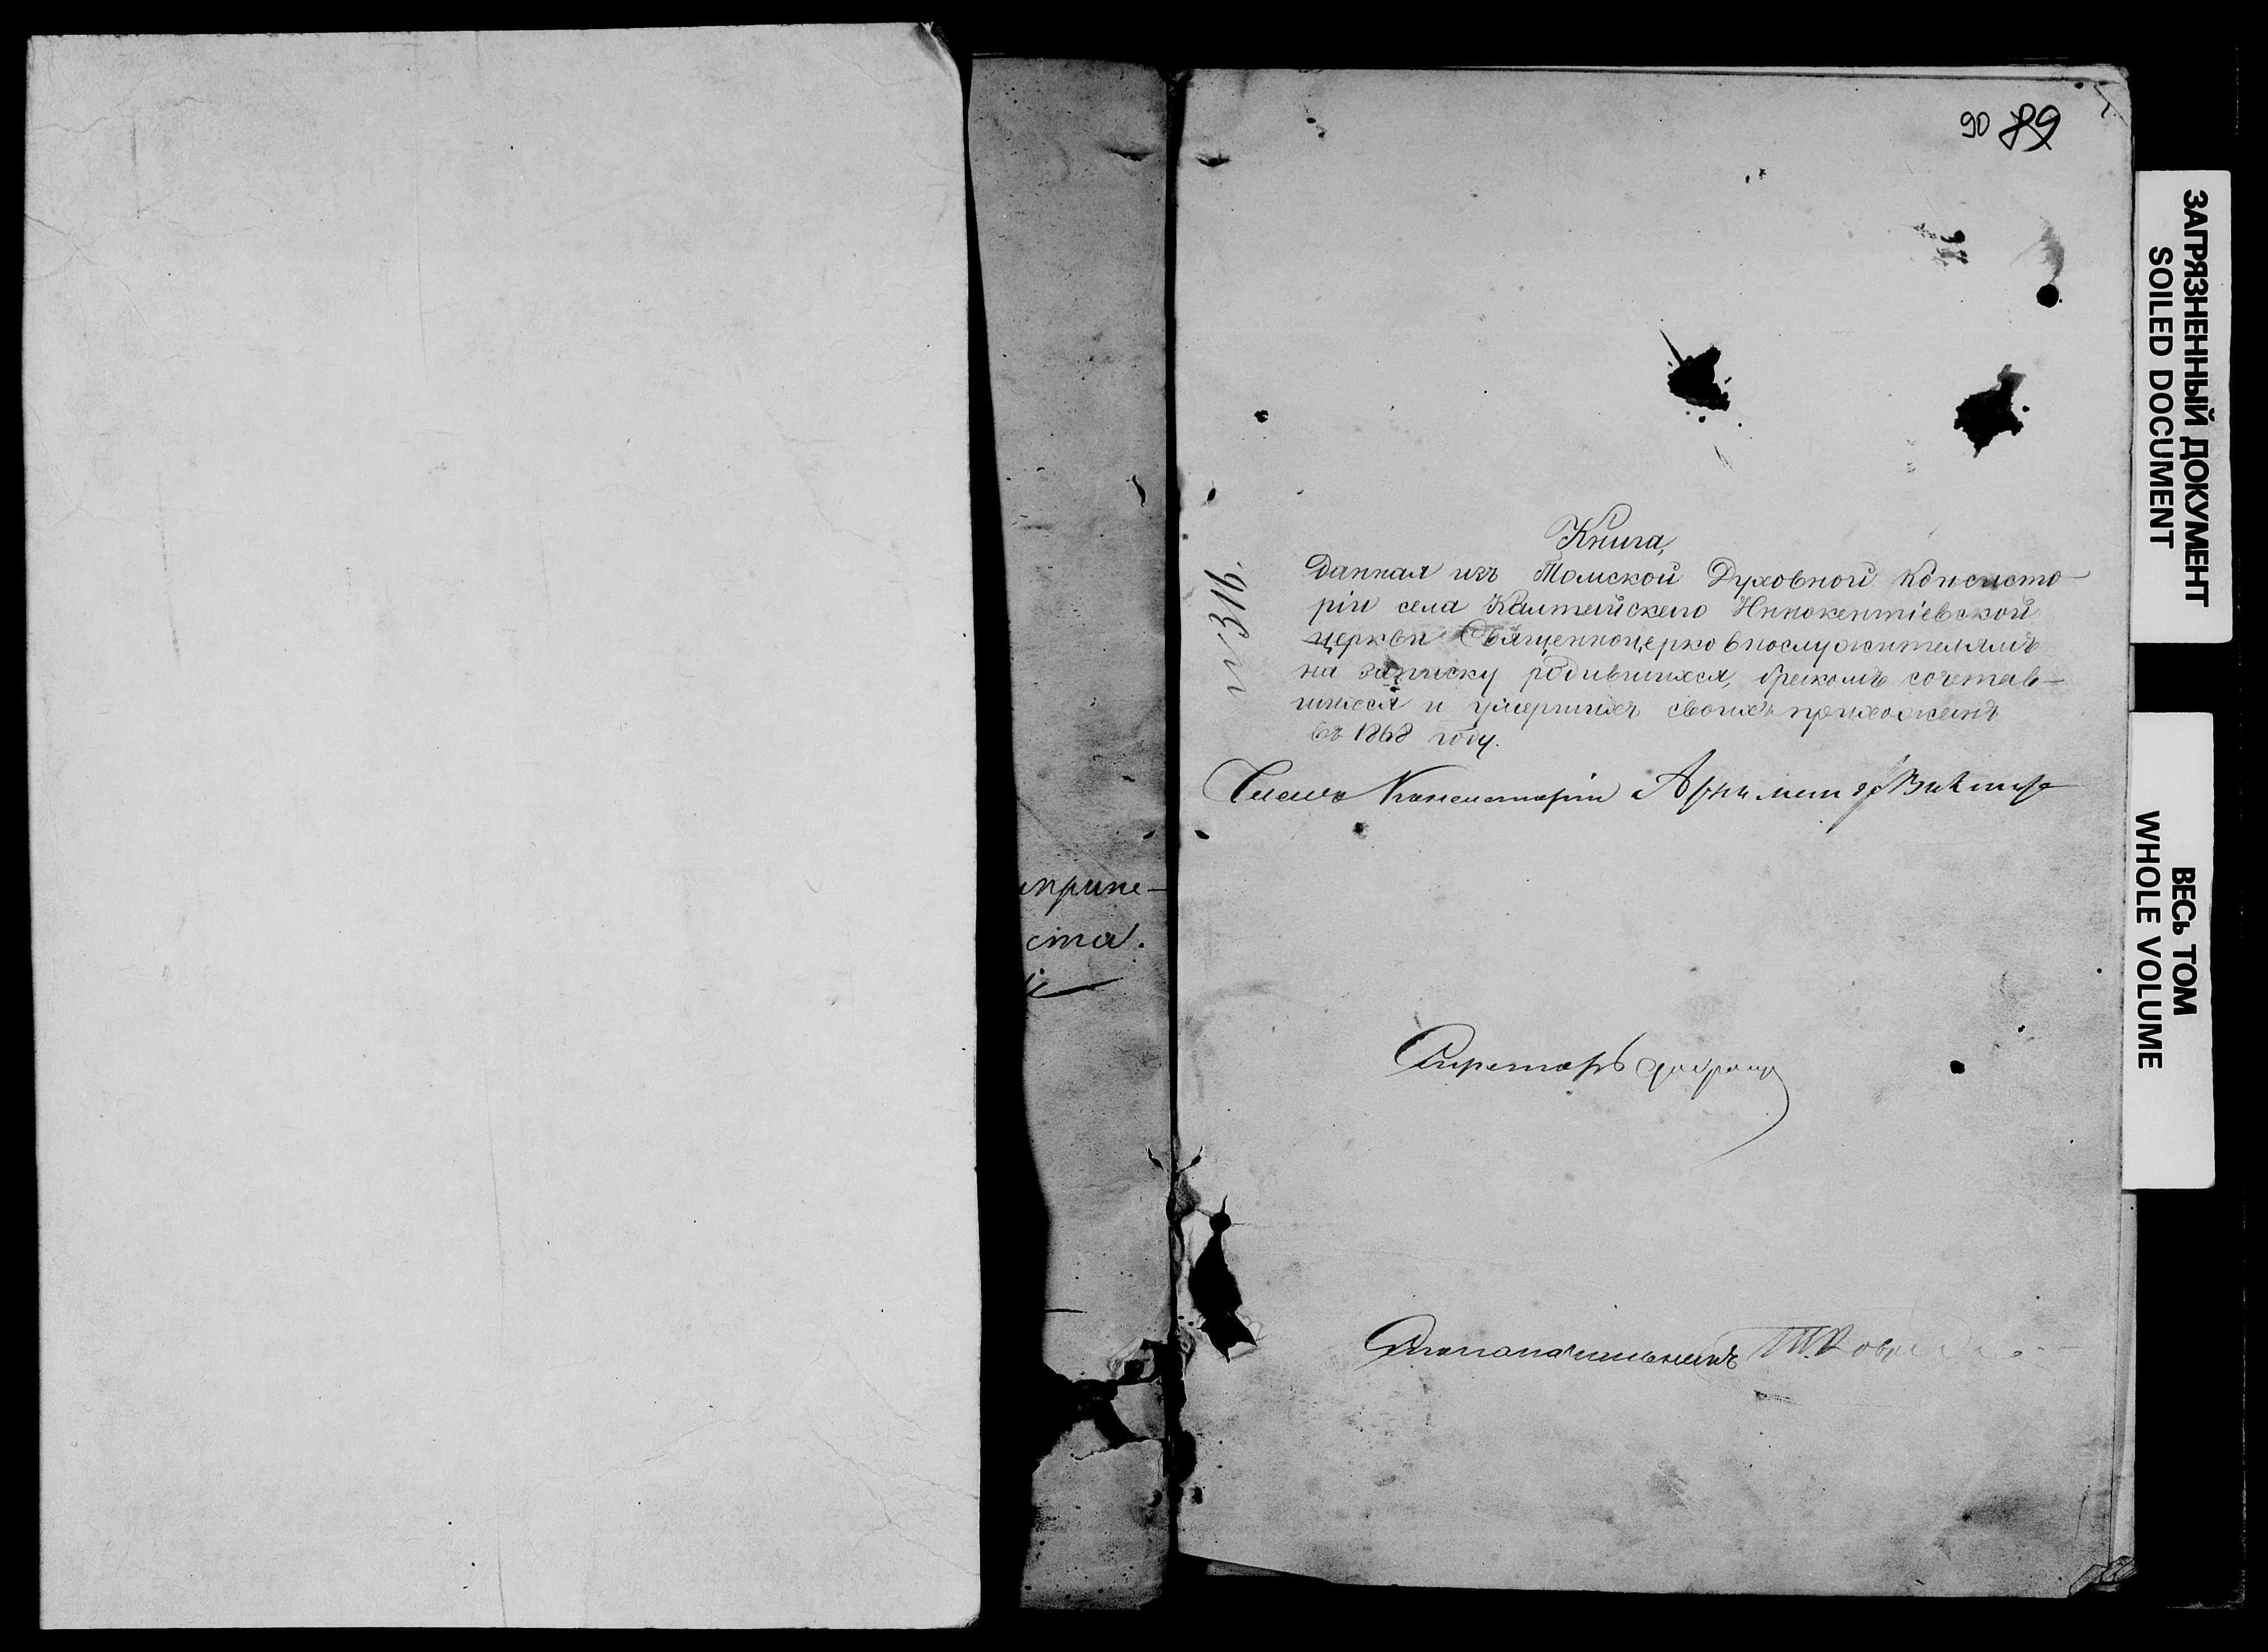 90 89
№ 316.
Книга,
Данная изъ Томской Духовной Консисто-
ріи села Калтайскаго Иннокентіевской
церкви Священноцерковнослужителямъ
на записку родившихся, бракомъ сочетав-
шихся и умершихъ своихъ прихожанъ
въ 1868 году.
Членъ Консисторіи Архиман Викторъ
ста.
Секретарь
Столоначальникъ
ЗАГРЯЗНЕННЫЙ ДОКУМЕНТ
SOILED DOCUMENT
ВЕСЬ ТОМ
WHOLE VOLUME